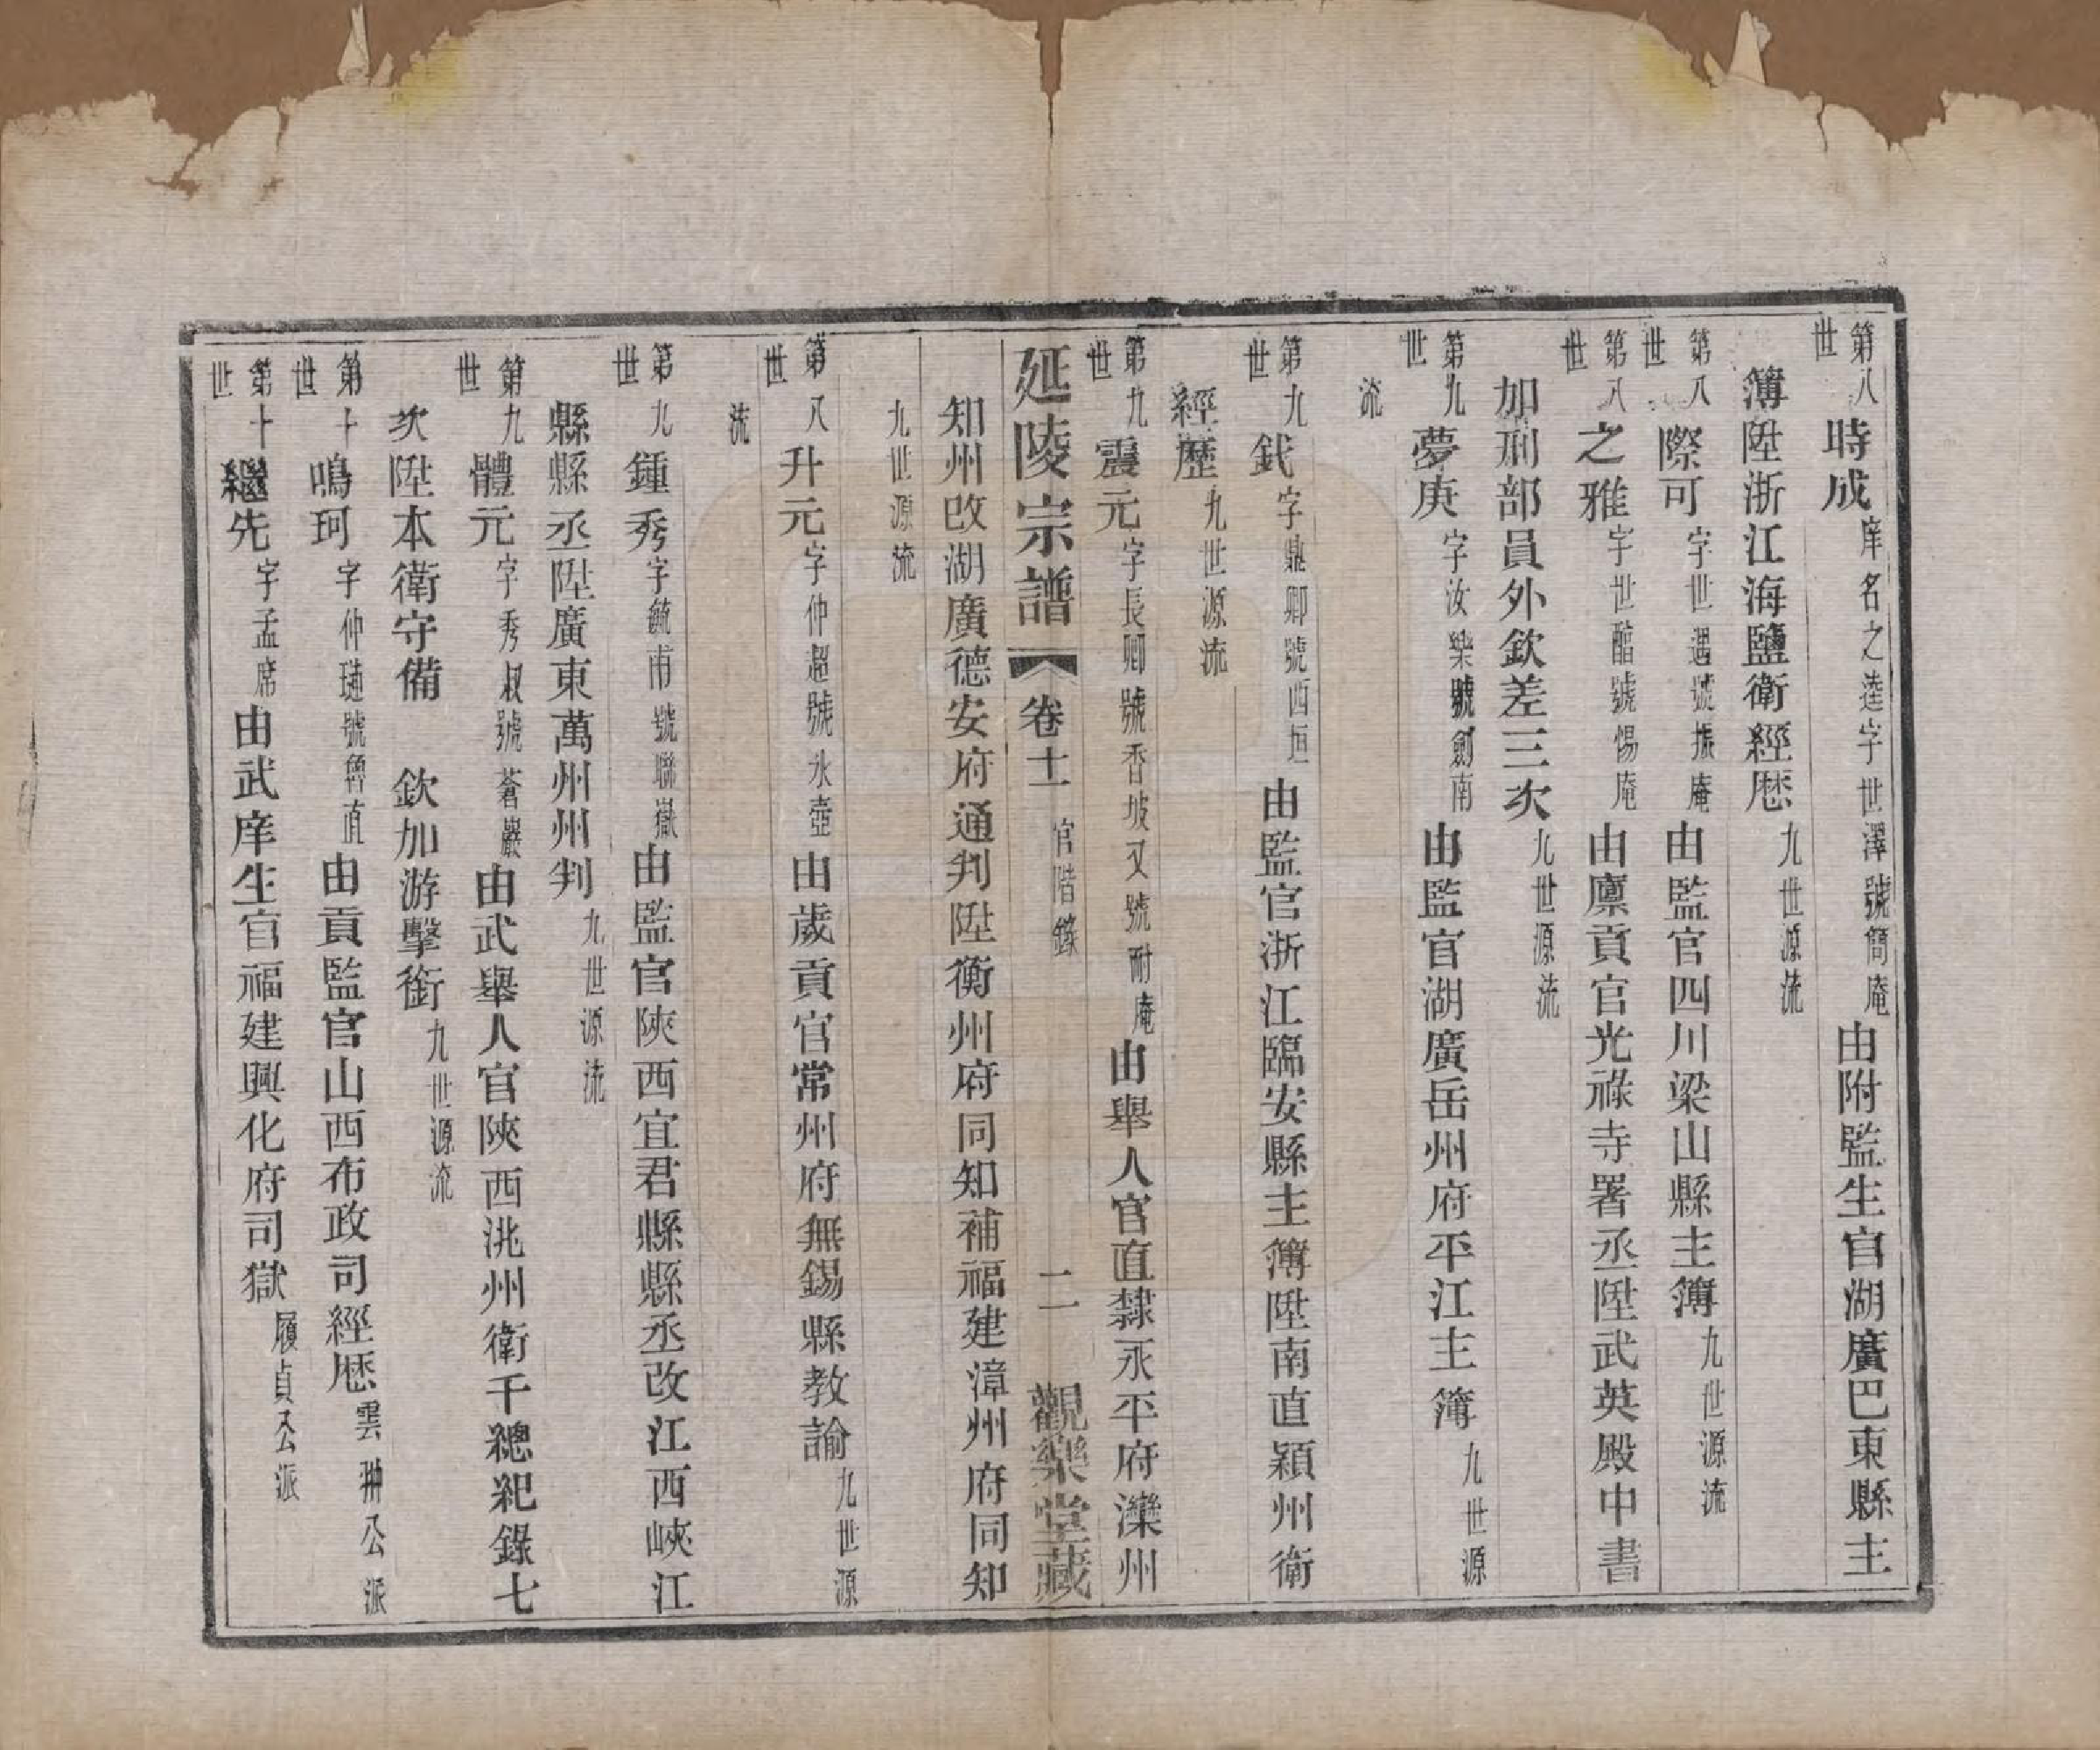 第八世 時成 庠名之逵字世澤號簡庵 由附監生官湖廣巴東縣主
簿陞浙江海鹽衛經歷 九世源流
第八世 際可 字世遇號振庵 由監官四川梁山縣主簿 九世源流
第八世 之雅 字世醞號惕庵 由廩貢官光祿寺署丞陞武英殿中書
加刑部員外欽差三次 九世源流
第九世 夢庚 字汝樂號劍南 由監官湖廣岳州府平江主簿 九世源
流
第九世 鉽 字鼎卿號西垣 由監官浙江臨安縣主簿陞南直潁州衛
經歷 九世源流
第九世 震元 字長卿號香坡又號耐庵 由舉人官直隸永平府灤州
延陵宗譜 卷十一 官階錄 二 觀樂堂藏
知州改湖廣德安府通判陞衡州府同知補福建漳州府同知
九世源流
第八世 升元 字仲超號氷壺 由歲貢官常州府無錫縣教諭 九世源
流
第九世 鍾秀 字毓甫號聯嶽 由監官陝西宜君縣縣丞改江西峽江
縣縣丞陞廣東萬州州判 九世源流
第九世 體元 字秀叔號蒼巖 由武舉人官陝西洮州衛千總紀錄七
次陞本衛守備 欽加游擊銜 九世源流
第十世 鳴珂 字仲璉號魯直 由貢監官山西布政司經歷 雲翀公派
第十世 繼先 字孟席 由武庠生官福建興化府司獄 履貞公派